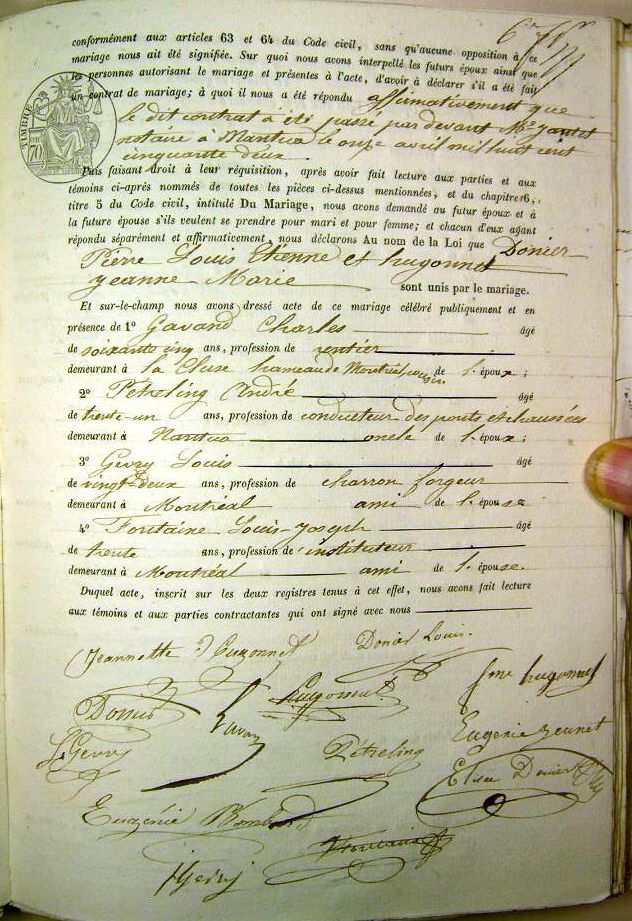 conformément aux articles 63 et 64 du Code civil, sans qu'aucune opposition à ce
mariage nous ait été signifiée. Sur quoi nous avons interpellé les futurs époux ainsi que
les personnes autorisant le mariage et présentes à l'acte, d'avoir à déclarer s'il a été fait
un contrat de mariage; à quoi il nous a été répondu affirmativement que
le dit contrat a été passé par devant Me
notaire à Nantua le onze avril mil huit cent
cinquante deux.
TIMBRE
70
Puis faisant droit à leur réquisition, après avoir fait lecture aux parties et aux
témoins ci-après nommés de toutes les pièces ci-dessus mentionnées, et du chapitre 6,
titre 5 du Code civil, intitulé Du Mariage, nous avons demandé au futur époux et à
la future épouse s'ils veulent se prendre pour mari et pour femme; et chacun d'eux ayant
répondu séparément et affirmativement, nous déclarons Au nom de la Loi que Donier
Pierre Louis Etienne et hugonnet
Jeanne Marie sont unis par le mariage.
Et sur-le-champ nous avons dressé acte de ce mariage célébré publiquement et en
présence de 1º Gavand Charles âgé
de soixante cinq ans, profession de rentier
demeurant à la Cluse hameau de Montréal cousin de l'époux;
2º Pétreling André âgé
de trente-un ans, profession de conducteur des ponts et chaussées
demeurant à Nantua oncle de l'époux;
3º Gevry Louis âgé
de vingt-deux ans, profession de charron forgeur
demeurant à Montréal ami de l'épouse
4º Fontaine Louis-Joseph âgé
de trente ans, profession de instituteur
demeurant à Montréal ami de l'épouse.
Duquel acte, inscrit sur les deux registres tenus à cet effet, nous avons fait lecture
aux témoins et aux parties contractantes qui ont signé avec nous
Jeannette Donier Louis
hugonnet
Donier
Eugenie Jeunet
L Gevry Pétreling
Elise Donier
Eugénie
Fontaine